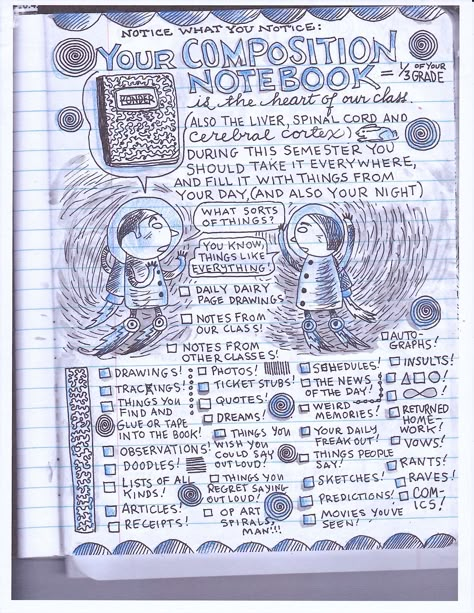 NOTICE WHAT YOU NOTICE:
YOUR COMPOSITION
NOTEBOOK = 1/3 OF YOUR GRADE
is the heart of our class.
(ALSO THE LIVER, SPINAL CORD AND
cerebral cortex)
DURING THIS SEMESTER YOU
SHOULD TAKE IT EVERYWHERE,
AND FILL IT WITH THINGS FROM
YOUR DAY, (AND ALSO YOUR NIGHT)
WHAT SORTS
OF THINGS?
YOU KNOW,
THINGS LIKE
EVERYTHING!
DAILY DAIRY
PAGE DRAWINGS
NOTES FROM
OUR CLASS!
NOTES FROM
OTHER CLASSES!
DRAWINGS!
TRACKINGS!
THINGS YOU
FIND AND
GLUE OR TAPE
INTO THE BOOK!
OBSERVATIONS!
DOODLES!
LISTS OF ALL
KINDS!
ARTICLES!
RECEIPTS!
PHOTOS!
TICKET STUBS!
QUOTES!
DREAMS!
THINGS YOU
WISH YOU
COULD SAY
OUT LOUD!
THINGS YOU
REGRET SAYING
OUT LOUD!
OP ART
SPIRALS,
MAN!!!
SCHEDULES!
THE NEWS
OF THE DAY!
WEIRD
MEMORIES!
YOUR DAILY
FREAK OUT!
THINGS PEOPLE
SAY!
SKETCHES!
PREDICTIONS!
MOVIES YOU'VE
SEEN!
AUTO-
GRAPHS!
INSULTS!
△□○!
∞!
RETURNED
HOME-
WORK!
VOWS!
RANTS!
RAVES!
COM-
ICS!